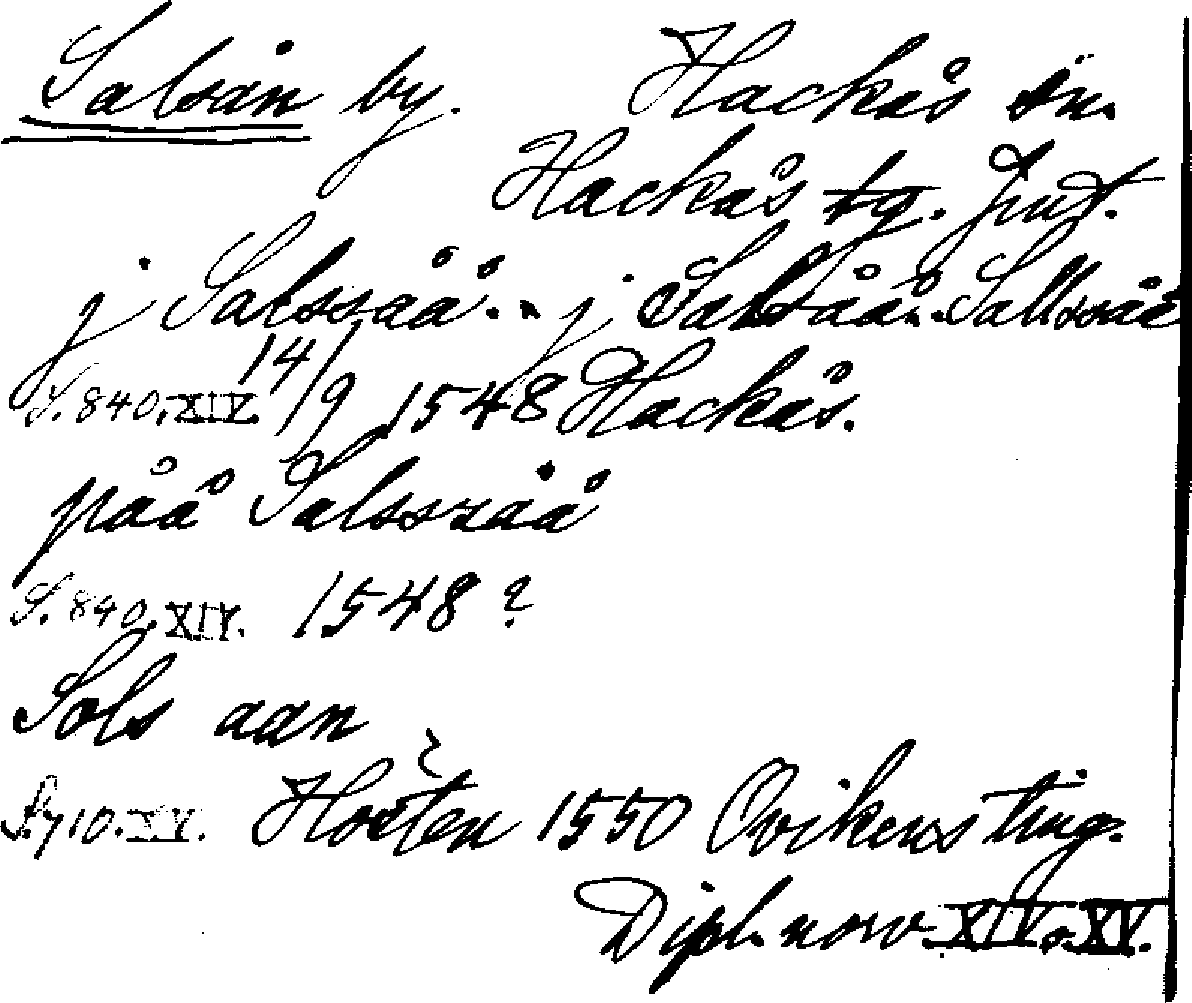 Salsån by. Hackås sn.
Hackås tg. Jmt.
j Salssåå. j Salsåå. Sallssåå
S. 840. XIV. 14/9 1548 Hackås.
påå Salssåå
S. 840. XIV. 1548 ?
Sols aan
S. 710. XV. Hösten 1550 Ovikens ting.
Dipl. norv. XIV o. XV.